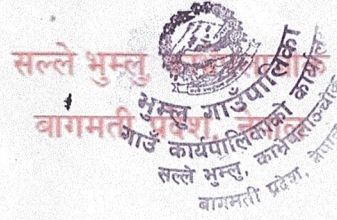 सल्ले भुम्लु,
बागमती प्रदेश, नेपाल
भुम्लु गाउँपालिका
गाउँ कार्यपालिकाको कार्यालय
सल्ले भुम्लु, काभ्रेपलाञ्चोक
बागमती प्रदेश, नेपाल